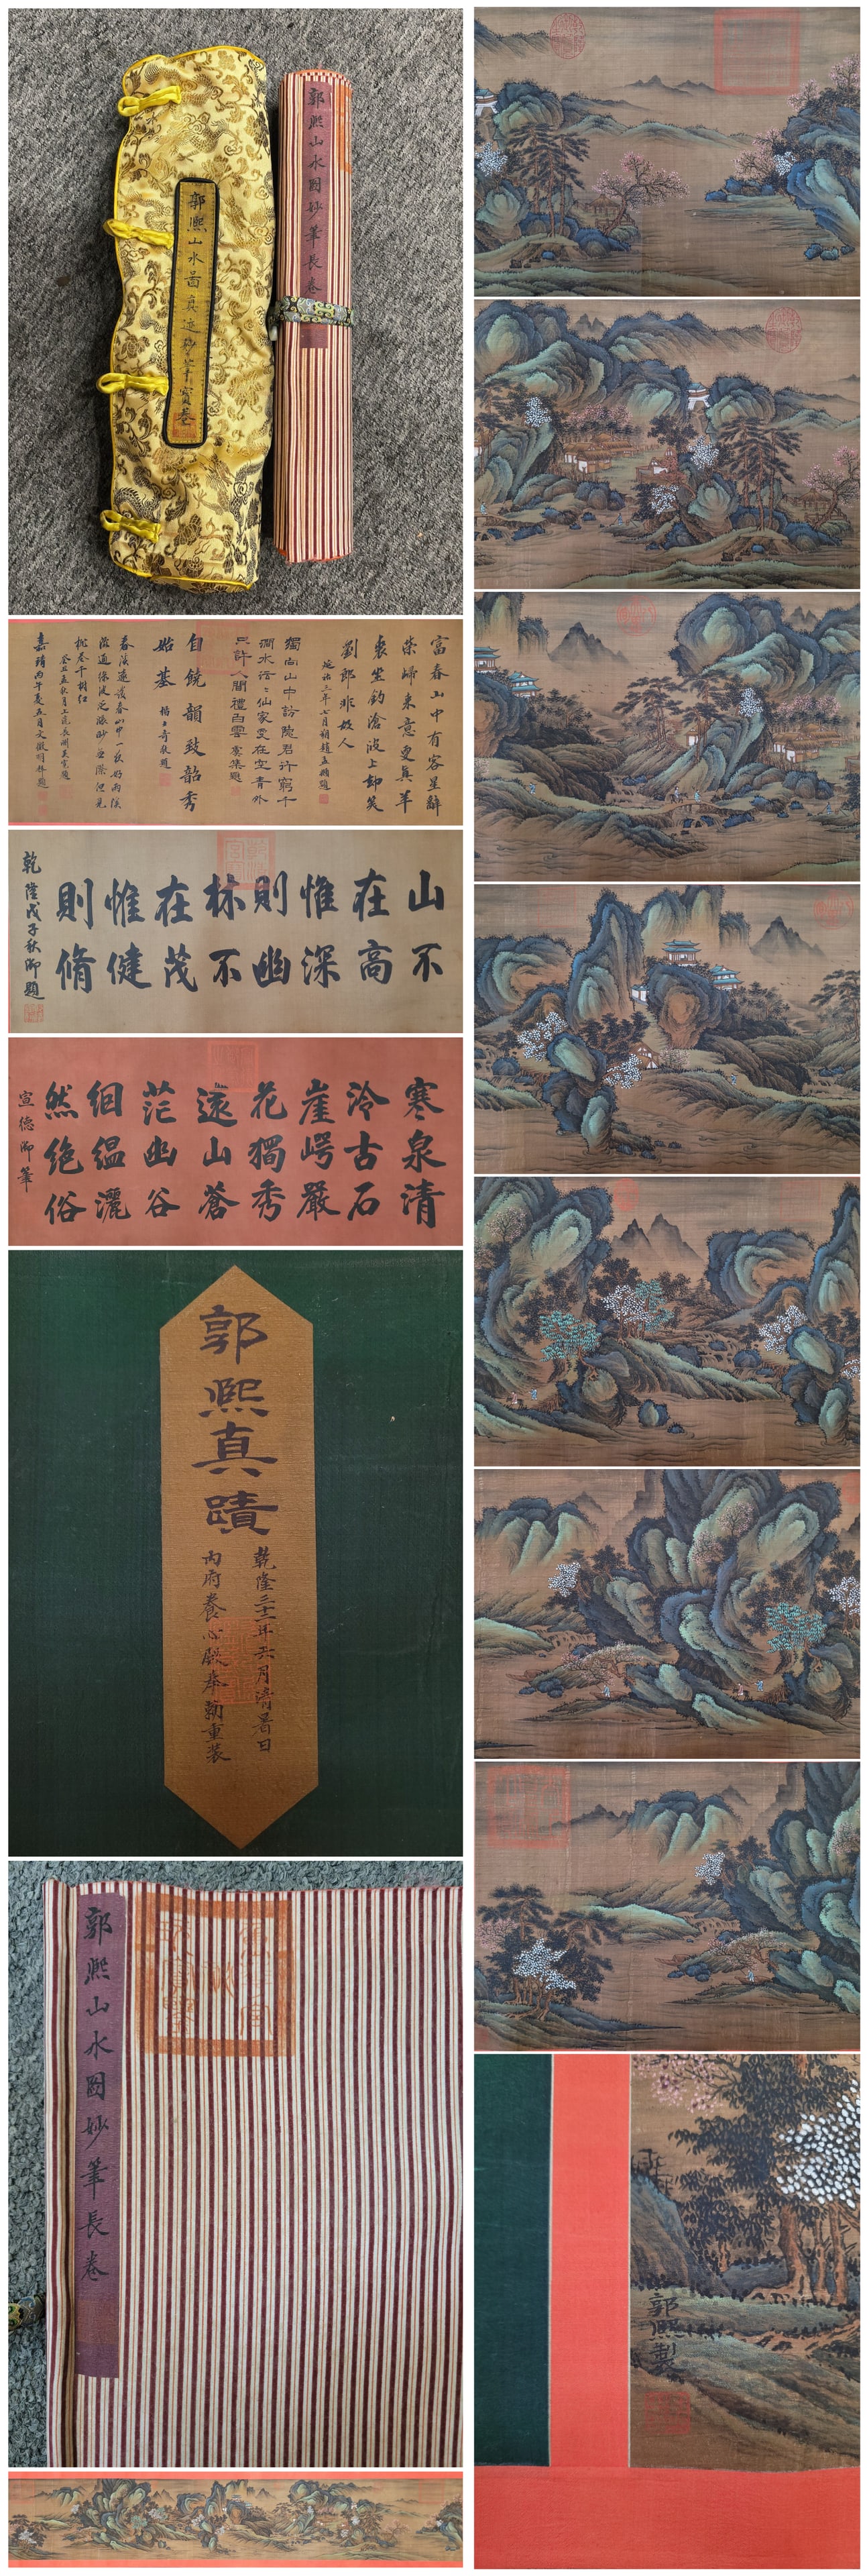 郭熙山水圖真迹妙筆寶卷
郭熙山水圖妙筆長卷
富春山中有客星辭
榮歸來意更真羊
裘坐釣滄波上却笑
劉郎非故人
延祐三年七月朔趙孟頫題
獨向山中訪隐君行窮千
澗水泠泠仙家更在空青外
只許人間禮白雲虞集題
自饒韻致韶秀
始基
楊士奇敬題
桃卷千樹紅
嘉靖丙午夏五月文徵明拜題
山不
在高
惟深
則幽
林不
在茂
惟健
則脩
乾隆戊子秋御題
寒泉清
泠古石
崖崿嚴
花獨秀
遠山蒼
茫幽谷
細緼灑
然絶俗
宣德御筆
郭熙真蹟
乾隆三十一年六月清暑日
内府養心殿奉勅重裝
郭熙山水圖妙筆長卷
郭熙製